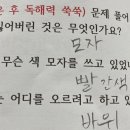 은 후 독해력 쑥쑥) 문제 풀이
잃어버린 것은 무엇인가요?
모자
무슨 색 모자를 쓰고 있었
빨간색
는 어디를 오르려고 하고 있
바위